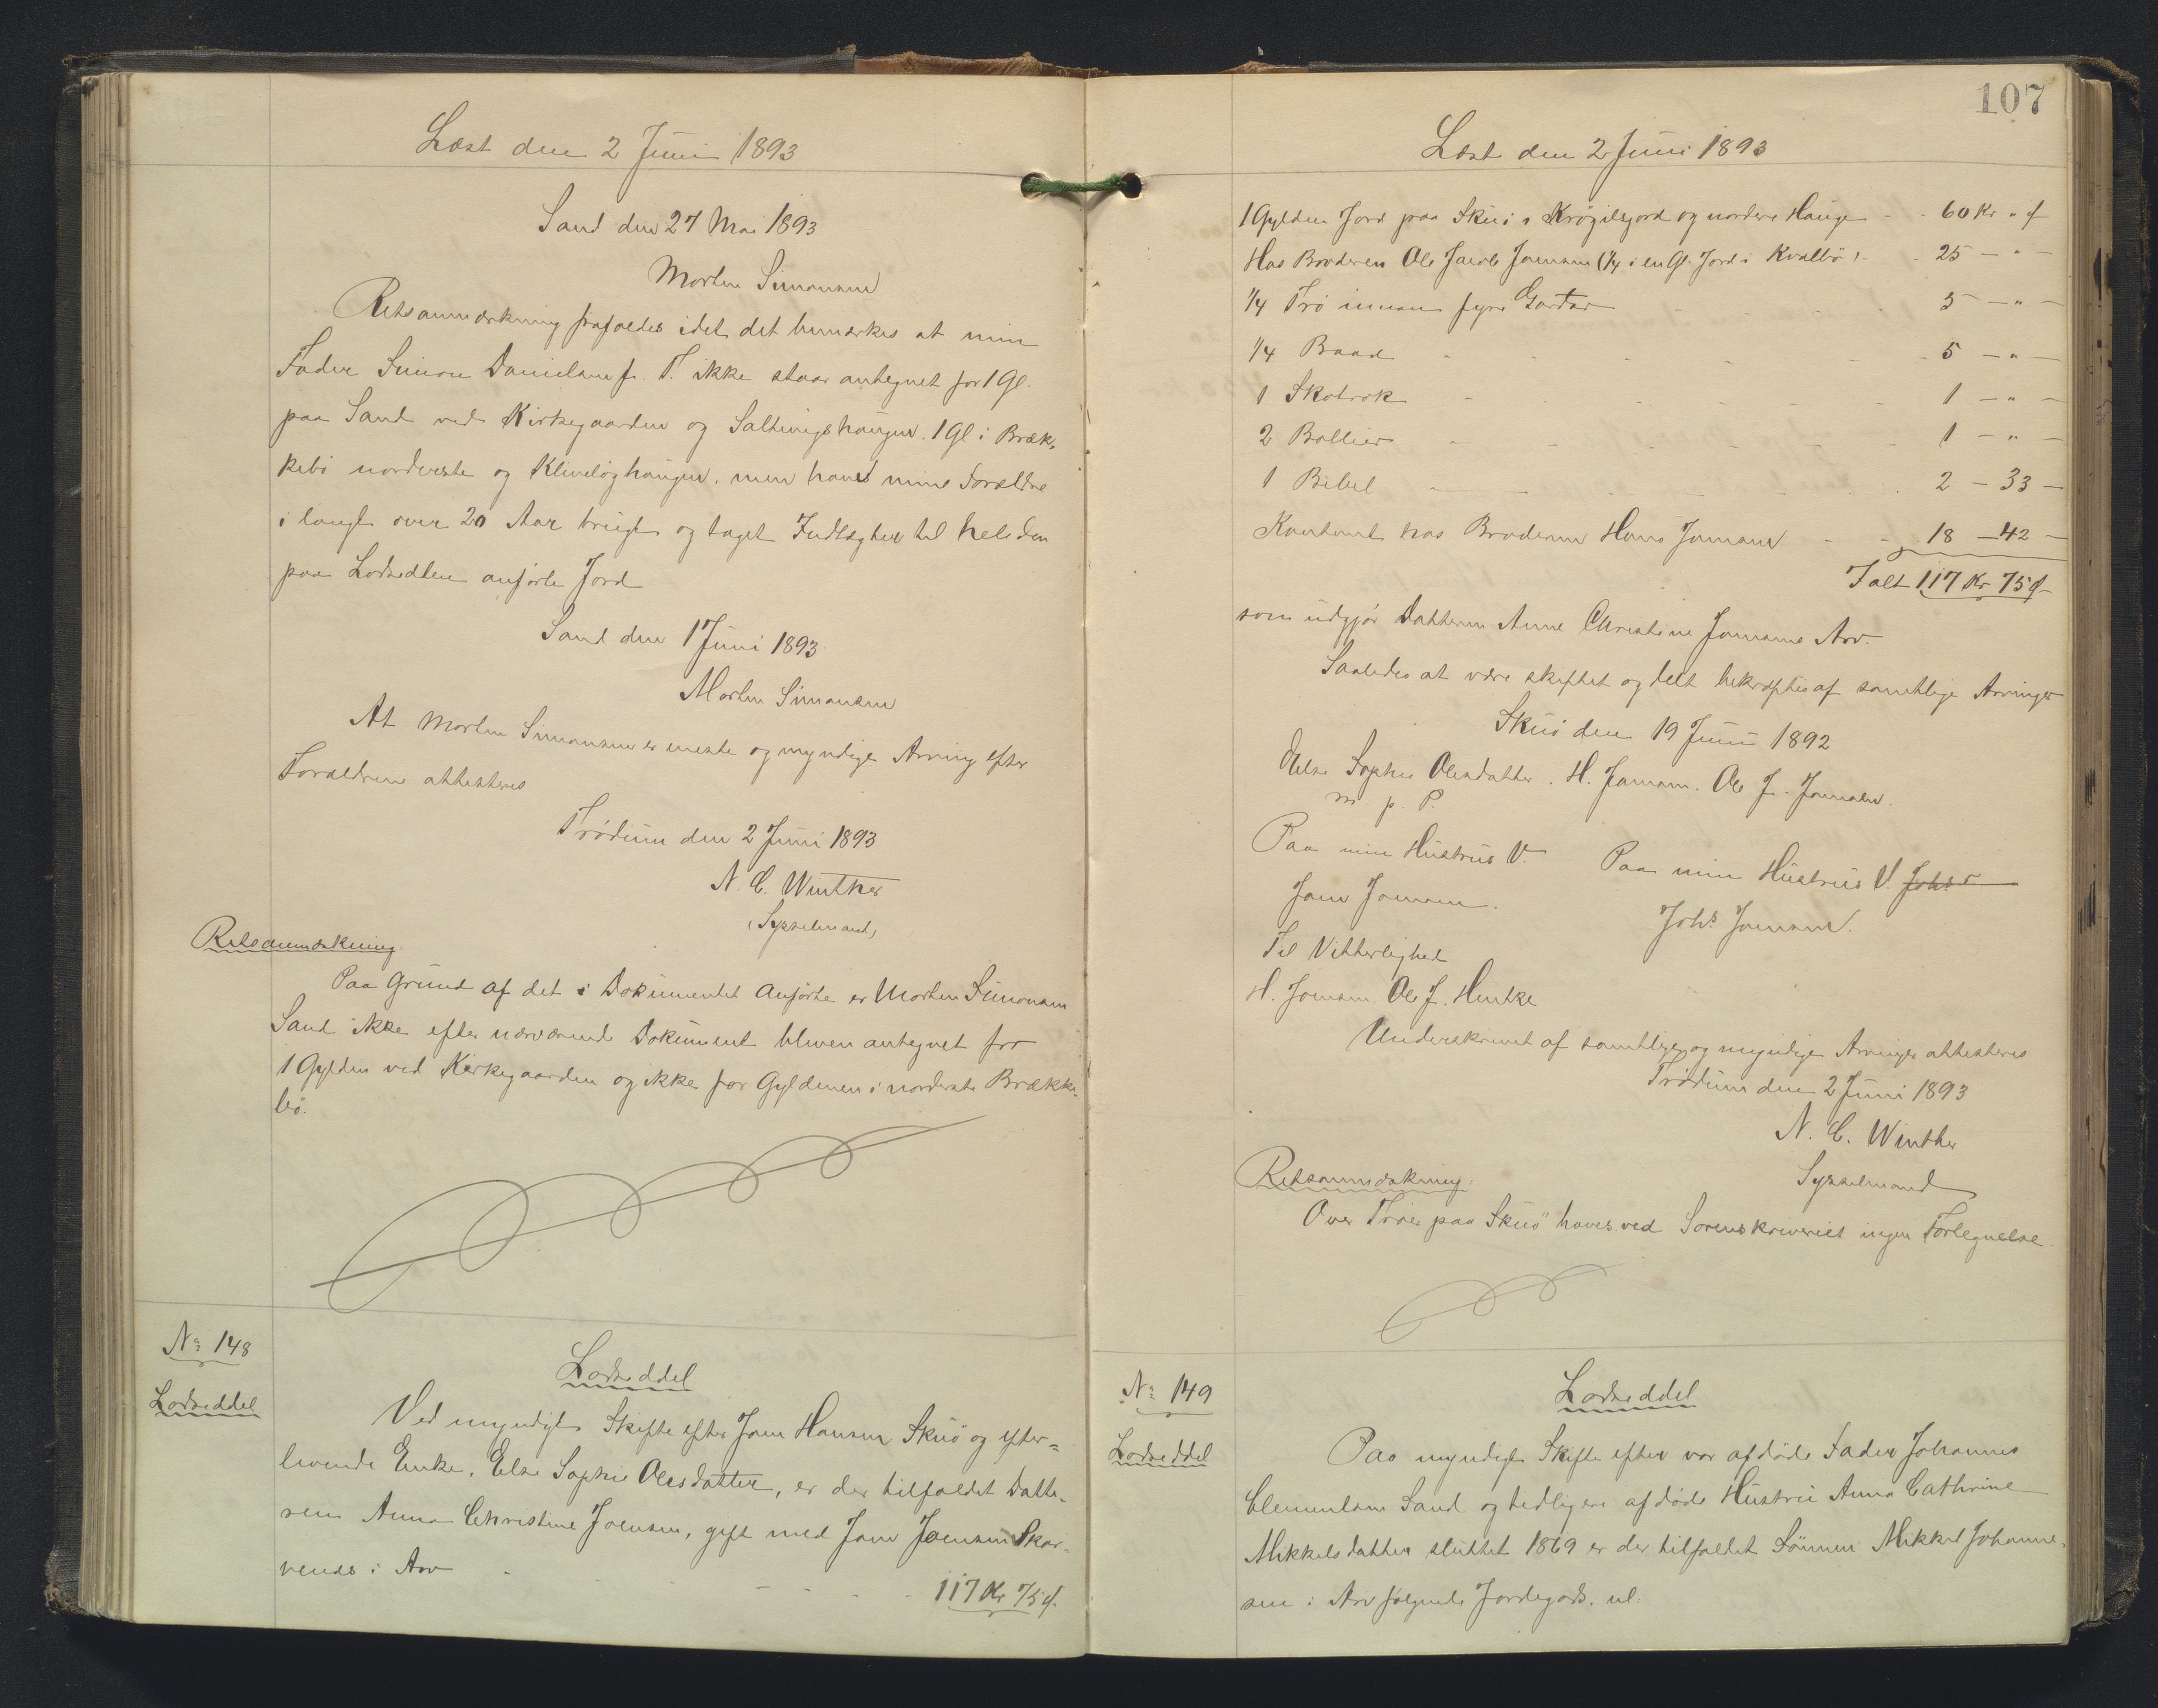 Læst den 2 Juni 1893
Sand den 27 Mai 1893
Morten Simonsen
Retsanmærkning frafaldes idet det bemærkes at min
Fader Simon Danielsen p. T. ikke staar antegnet for 1 Gl.
paa Sand ved Kirkegaarden og Saltvigshaugen. 1 Gl i Bræk-
kebö norderste og Kliveløghaugen, men haved mine Forældre
i langt over 20 Aar brugt og taget Indtægter til hele den
paa Lodsedlen anförte Jord
Sand den 1 Juni 1893
Morten Simonsen
At Morten Simonsen er eneste og myndige Arving efter
Forældrene attesteres
Trödum den 2 Juni 1893
N. C. Winther
(Sysselmand)
Retsanmærkning.
Paa Grund af det i Dokumentet Anförte er Morten Simonsen
Sand ikke efter nærværende Dokument bleven antegnet for
1 Gylden ved Kirkegaarden og ikke for Gyldenen i norderste Brække-
bö.
No 148
Lodseddel
Lodseddel
Ved myndigt Skifte efter Joen Hansen Skuö og efter-
levende Enke, Else Sophie Olesdatter, er der tilfaldet Datte-
ren Anna Christine Joensen, gift med Joen Joensen Skar-
venes i Arv - - - - 117 Kr 75 ø.
107
Læst den 2 Juni 1893
1 Gylden Jord paa Skuö i Krögilsgord og nordere Hauge - - 60 Kr " ø
Hos Broderen Ole Jacob Joensen (1/4 i en Gl. Jord i Kvalbö) - - 25 - " -
1/4 Trö innan fyri Gardar - - 5 - " -
1/4 Baad - - - - 5 - " -
1 Skotrok - - - - 1 - " -
2 Ballier - - - - 1 - " -
1 Bibel - - - - 2 - 33 -
Kontant hos Broderen Hans Joensen - - 18 - 42 -
Ialt 117 Kr 75 ø
som udgjør Datteren Anne Christine Joensens Arv.
Saaledes at være skiftet og delt bekræftes af samtlige Arvinger
Skuö den 19 Juni 1892
Else Sophie Olesdatter. H. Joensen. Ole J. Joensen.
m p. P.
Paa min Hustrus V
Paa min Hustrus V. Johs
Joen Joensen.
Johs Joensen.
Til Vitterlighed
H. Joensen Ole J. Hentze
Underskrivet af samtlige og myndige Arvinger attesteres
Trödum den 2 Juni 1893
N. C. Winther
Sysselmand
Retsanmærkning:
Over Tröer paa Skuö haves ved Sorenskriveriet ingen Fortegnelse
No 149
Lodseddel
Lodseddel
Paa myndigt Skifte efter vor afdöde Fader Johannes
Clementsen Sand og tidligere afdöde Hustru Anna Cathrine
Mikkelsdatter sluttet 1869 er der tilfaldet Sönnen Mikkel Johanne-
sen i Arv følgende Jordegods. nl: